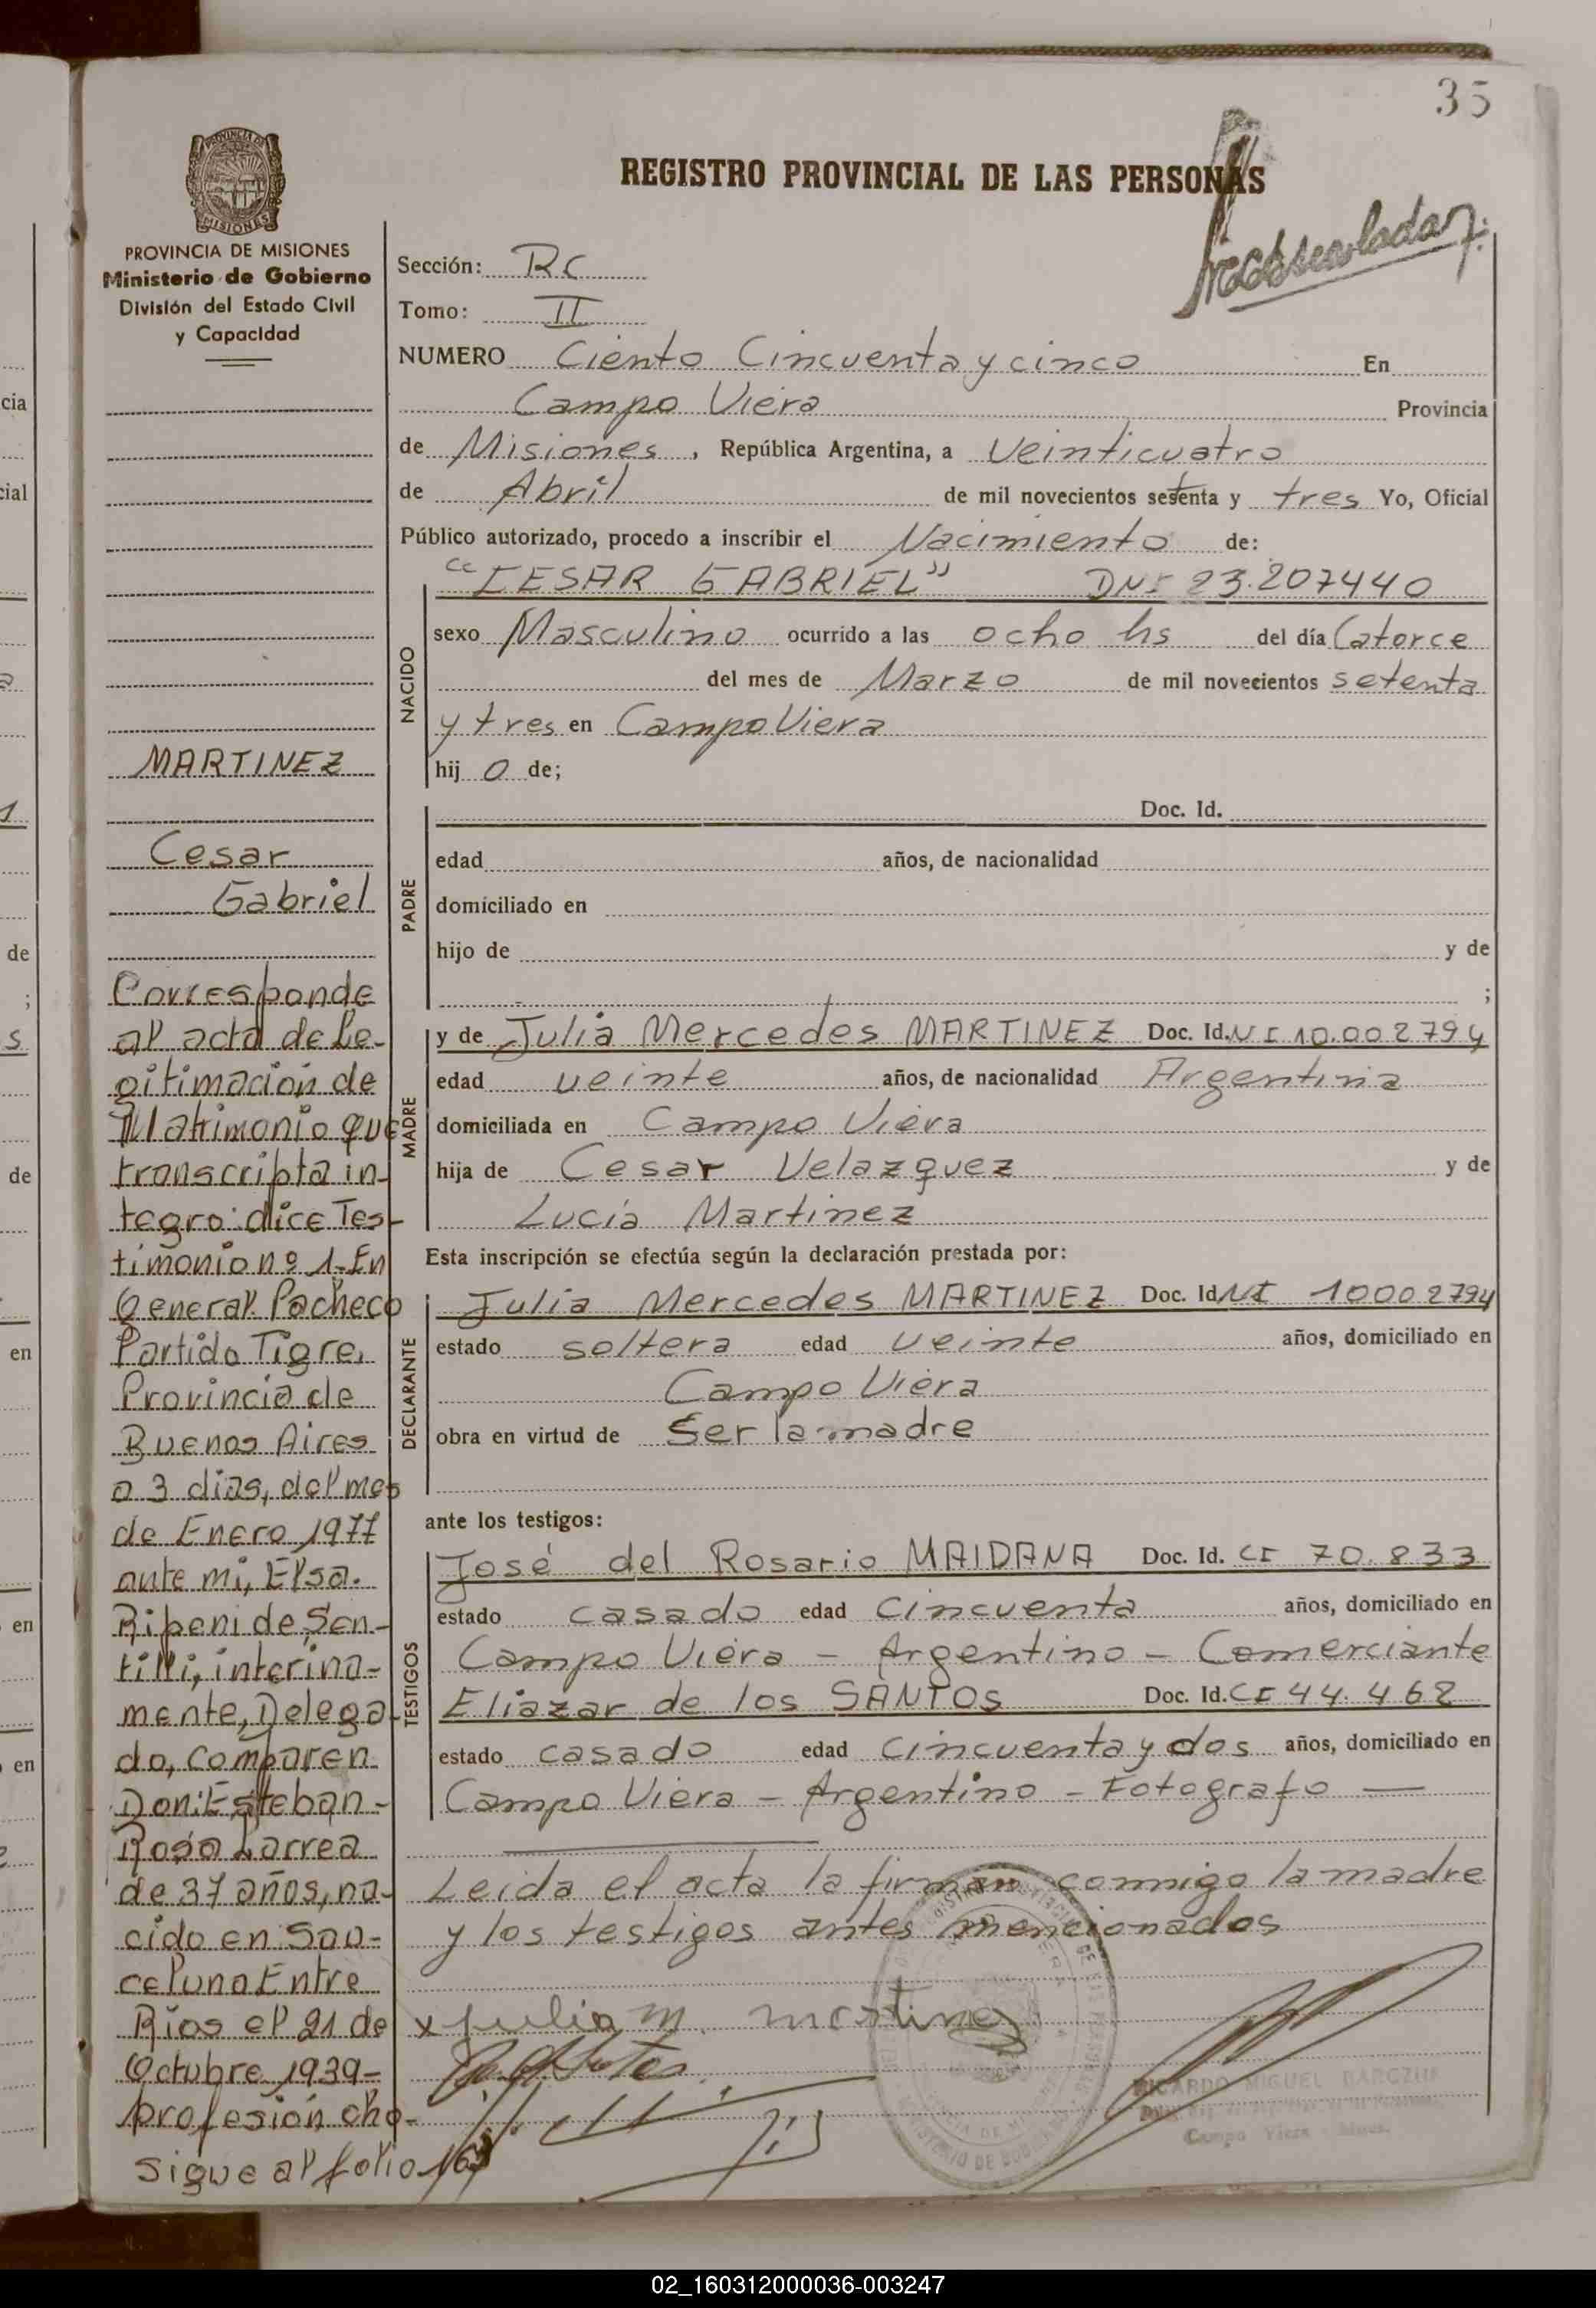 35
REGISTRO PROVINCIAL DE LAS PERSONAS
PROVINCIA DE MISIONES
Ministerio de Gobierno
División del Estado Civil
y Capacidad
Sección: RC
Tomo: II
NUMERO Ciento Cincuenta y cinco En
Campo Viera Provincia
de Misiones, República Argentina, a Veinticuatro
de Abril de mil novecientos setenta y tres Yo, Oficial
Público autorizado, procedo a inscribir el Nacimiento de:
"CESAR GABRIEL" DNI 23.207440
NACIDO
sexo Masculino ocurrido a las ocho hs del día Catorce
del mes de Marzo de mil novecientos setenta
y tres en Campo Viera
hij o de;
PADRE
Doc. Id.
edad años, de nacionalidad
domiciliado en
hijo de y de
;
MADRE
y de Julia Mercedes MARTINEZ Doc. Id. NI 10.002794
edad veinte años, de nacionalidad Argentina
domiciliada en Campo Viera
hija de Cesar Velazquez y de
Lucía Martinez
Esta inscripción se efectúa según la declaración prestada por:
DECLARANTE
Julia Mercedes MARTINEZ Doc. Id NI 10002794
estado soltera edad veinte años, domiciliado en
Campo Viera
obra en virtud de Ser la madre
ante los testigos:
TESTIGOS
José del Rosario MAIDANA Doc. Id. CI 70.833
estado casado edad Cincuenta años, domiciliado en
Campo Viera - Argentino - Comerciante
Eliazar de los SANTOS Doc. Id. CI 44.468
estado casado edad Cincuenta y dos años, domiciliado en
Campo Viera - Argentino - Fotografo
Leida el acta la firman conmigo la madre
y los testigos antes mencionados
x Julia M. martinez
RICARDO MIGUEL
Campo Viera
MARTINEZ
Cesar
Gabriel
Corresponde
al acta de Le-
gitimación de
Matrimonio que
transcripta in-
tegro: dice Tes-
timonio nº 1-En
General Pacheco
Partido Tigre,
Provincia de
Buenos Aires
a 3 dias, del mes
de Enero 1977
ante mi, Elsa
Ripeni de Sen-
tilli, interina-
mente, Delega-
do, comparen
Don: Esteban-
Rosa Larrea
de 37 años, na-
cido en Sau-
ce Luna Entre
Ríos el 21 de
Octubre 1939-
profesión cho-
sigue al folio 169
02_160312000036-003247